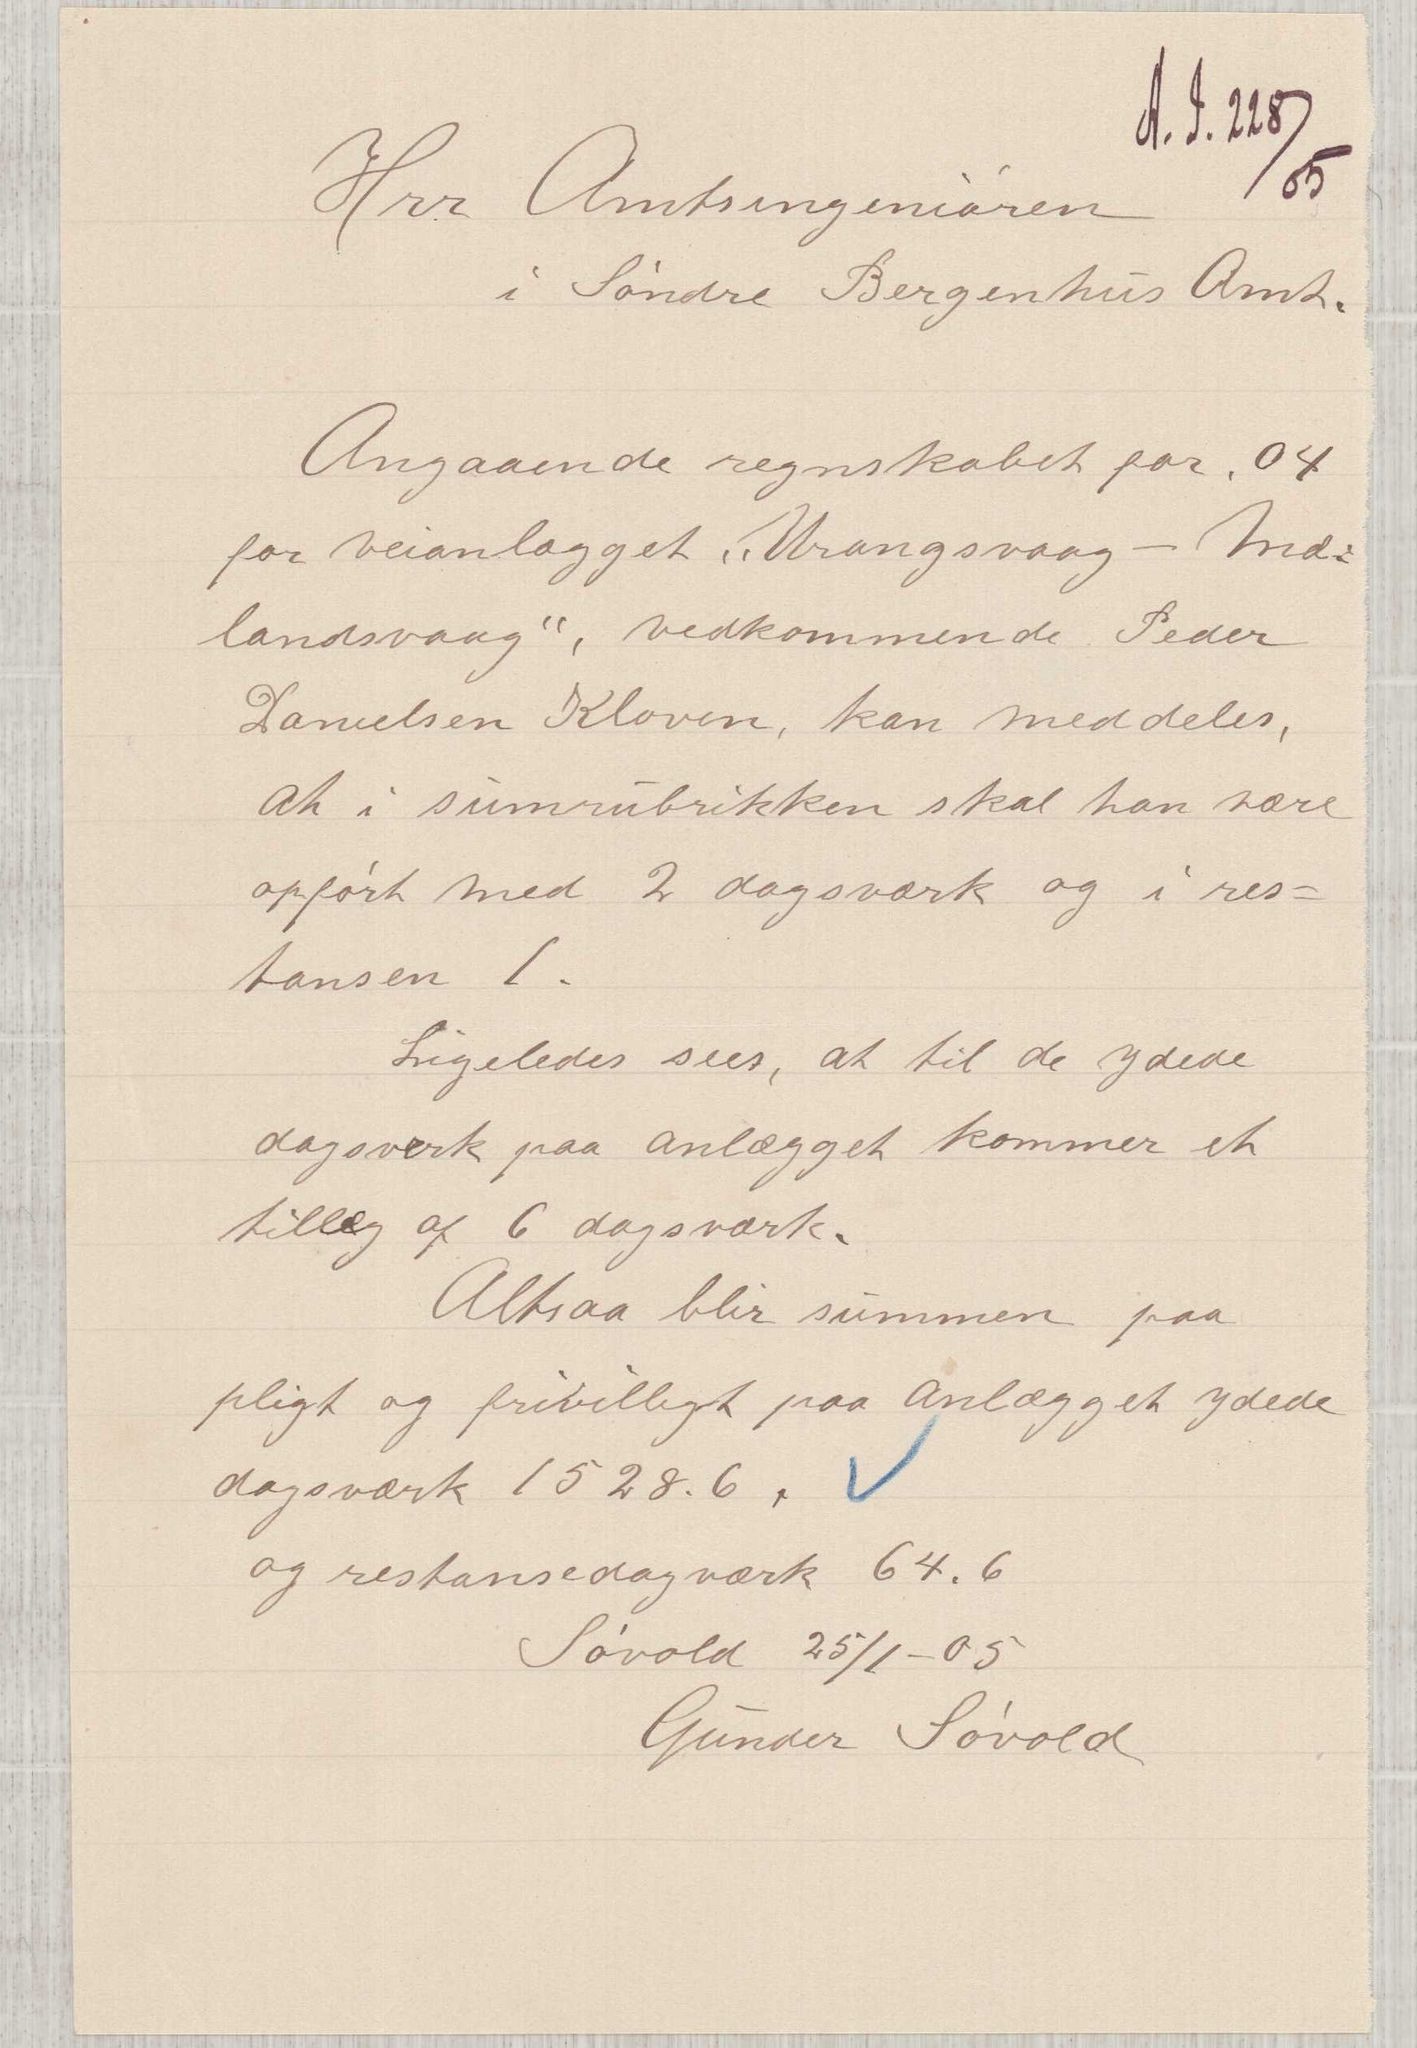 A. I. 228/05
Hrr Amtsingeniören
i Söndre Bergenhus Amt.
Angaaende regnskabet for .04
for veianlægget „Urangsvaag – Mæ=
landsvaag“, vedkommende Peder
Danielsen Kloven, kan meddeles,
at i sumrubrikken skal han være
opfört med 2 dagsværk og i res=
tansen 1.
Ligeledes sees, at til de ydede
dagsverk paa anlægget kommer et
tillæg af 6 dagsværk.
Altsaa blir summen paa
pligt og frivilligt paa anlægget ydede
dagsværk 1528.6.
og restansedagværk 64.6
Sövold 25/1–05
Gunder Sövold